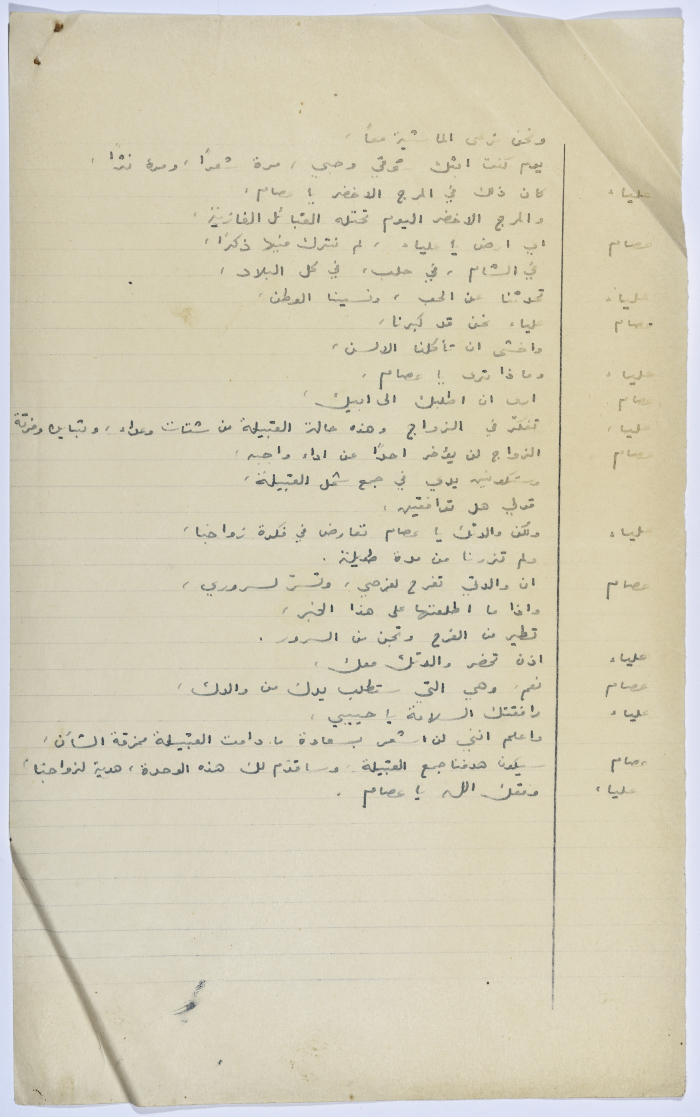 ونحن نرعى الماشية معاً،
يوم كنت ابثك شوقي وحبي، مرة شعراً، ومرة نثراً،
علياء كان ذلك في المرج الاخضر يا عصام،
والمرج الاخضر اليوم تحتله القبائل الغازية،
عصام اي ارض يا علياء، لم نترك فيها ذكراً،
في الشام، في حلب، في كل البلاد،
علياء تحدثنا عن الحب، ونسينا الوطن،
عصام علياء نحن قد كبرنا،
واخشى ان تأكلنا الالسن،
علياء وماذا ترى يا عصام،
عصام ارى ان اطلبك الى ابيك،
علياء تفكر في الزواج وهذه حالة القبيلة من شتات وعداء، وتباين وفرقة
عصام الزواج لن يؤخر احداً عن اداء واجبه،
وستكونين يدي في جمع شمل القبيلة،
قولي هل توافقين،
علياء ولكن والدتك يا عصام تعارض في فكرة زواجنا،
ولم تزرنا من مدة طويلة.
عصام ان والدتي تفرح لفرحي، وتسر لسروري،
واذا ما اطلعتها على هذا الخبر،
تطير من الفرح وتجن من السرور.
علياء اذن تحضر والدتك معك،
عصام نعم، وهي التي ستطلب يدك من والدك،
علياء رافقتك السلامة يا حبيبي،
واعلم انني لن اشعر بسعادة ما دامت القبيلة ممزقة الشأن،
عصام سيكون هدفنا جمع القبيلة، وساقدم لك هذه الوحدة، هدية لزواجنا،
علياء وفقك الله يا عصام.